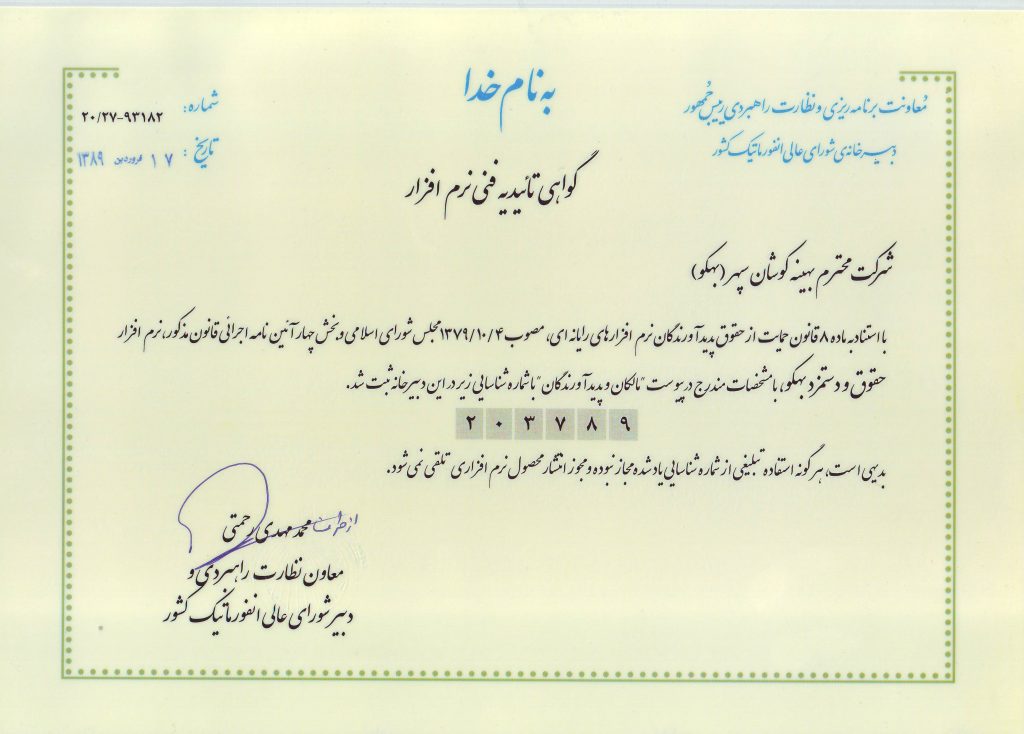 به نام خدا
معاونت برنامه ریزی و نظارت راهبردی رییس جمهور
دبیرخانه‌ی شورای عالی انفورماتیک کشور
شماره: ۲۰/۲۷-۹۳۱۸۲
تاریخ: ۱۷ فروردین ۱۳۸۹
گواهی تائیدیه فنی نرم افزار
شرکت محترم بهینه کوشان سپهر (بهکو)
با استناد به ماده ۸ قانون حمایت از حقوق پدیدآورندگان نرم افزارهای رایانه ای، مصوب ۱۳۷۹/۱۰/۴ مجلس شورای اسلامی و بخش چهار آئین نامه اجرائی قانون مذکور، نرم افزار
حقوق و دستمزد بهکو، با مشخصات مندرج در پیوست "مالکان و پدیدآورندگان" با شماره شناسایی زیر در این دبیرخانه ثبت شد.
۲۰۳۷۸۹
بدیهی است، هرگونه استفاده تبلیغی از شماره شناسایی یاد شده مجاز نبوده و مجوز انتشار محصول نرم افزاری تلقی نمی شود.
از طرف محمد مهدی رحمتی
معاون نظارت راهبردی و
دبیر شورای عالی انفورماتیک کشور